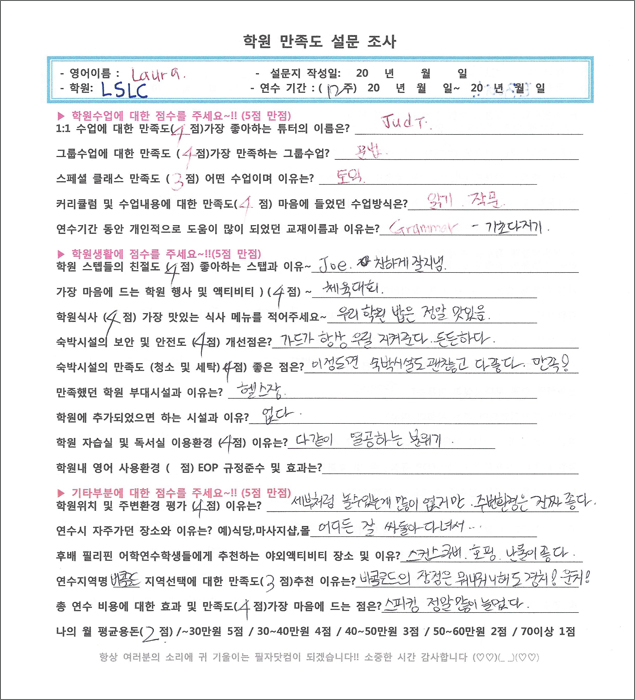 학원 만족도 설문 조사
- 영어이름 : Laura. - 설문지 작성일: 20 년 월 일
- 학원: LSLC - 연수 기간 : (12주) 20 년 월 일~ 20 년 월 일
▶ 학원수업에 대한 점수를 주세요~!! (5점 만점)
1:1 수업에 대한 만족도(4점)가장 좋아하는 튜터의 이름은? Judy.
그룹수업에 대한 만족도 (4점)가장 만족하는 그룹수업? 문법
스페셜 클래스 만족도 (3점) 어떤 수업이며 이유는? 토익
커리큘럼 및 수업내용에 대한 만족도(4 점) 마음에 들었던 수업방식은? 읽기. 작문
연수기간 동안 개인적으로 도움이 많이 되었던 교재이름과 이유는? Grammar - 기초다지기.
▶ 학원생활에 점수를 주세요~!!(5점 만점)
학원 스텝들의 친절도(4점) 좋아하는 스탭과 이유~ Joe. 친하게 잘지냄.
가장 마음에 드는 학원 행사 및 액티비티 ) (4점) ~ 체육대회.
학원식사 (4점) 가장 맛있는 식사 메뉴를 적어주세요~ 우리 학원 밥은 정말 맛있음
숙박시설의 보안 및 안전도 (4점) 개선점은? 가드가 항상 우릴 지켜준다. 든든하다.
숙박시설의 만족도 (청소 및 세탁)(4점) 좋은 점은? 이정도면 숙박시설도 괜찮고 다좋다. 만족?
만족했던 학원 부대시설과 이유는? 헬스장.
학원에 추가되었으면 하는 시설과 이유? 없다.
학원 자습실 및 독서실 이용환경 (4점) 이유는? 다같이 열공하는 분위기.
학원내 영어 사용환경 ( 점) EOP 규정준수 및 효과는?
▶ 기타부분에 대한 점수를 주세요~!! (5점 만점)
학원위치 및 주변환경 평가 (4점) 이유는? 세부처럼 놀수있는게 많이 없지만. 주변환경은 진짜 좋다.
연수시 자주가던 장소와 이유는? 예)식당,마사지샵,몰 어디든 잘 싸돌아 다녀서...
후배 필리핀 어학연수학생들에게 추천하는 야외액티비티 장소 및 이유? 스킨스쿠버. 호핑. 난좋다.
연수지역명 바콜로드 지역선택에 대한 만족도(3점)추천 이유는? 바콜로드의 장점은 뭐니뭐니해도 경치!
총 연수 비용에 대한 효과 및 만족도(4점)가장 마음에 드는 점은? 스피킹 정말많이 늘었다.
나의 월 평균용돈(2점) /~30만원 5점 / 30~40만원 4점 / 40~50만원 3점 / 50~60만원 2점 / 70이상 1점
항상 여러분의 소리에 귀 기울이는 필자닷컴이 되겠습니다!! 소중한 시간 감사합니다 (♡♡)(_ _)(♡♡)